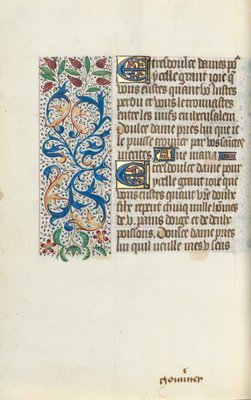 Tresdoulce dame po'
ycelle grant ioie que
vous eustes quant vous leustes
perdu et vous le trouuastes
entre les iuifs en iherusalem
Doulce dame pries luy que ie
le puisse par vos saintes
merites Aue maria
Tresdoulce dame pour
ycelle grant ioie que
vous eustes quant vr̄e doulx
filz reput chinq mille hōmes
de v. pains dorge et de deulx
poissons. Doulce dame pries
luy quil vueille mes v sens